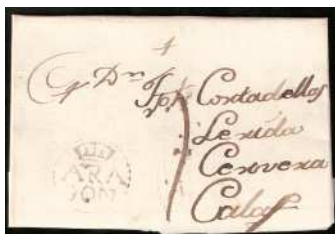 Dn. Jph Cortadellas
Lerida
Cervera
Calaf
ARA
GON